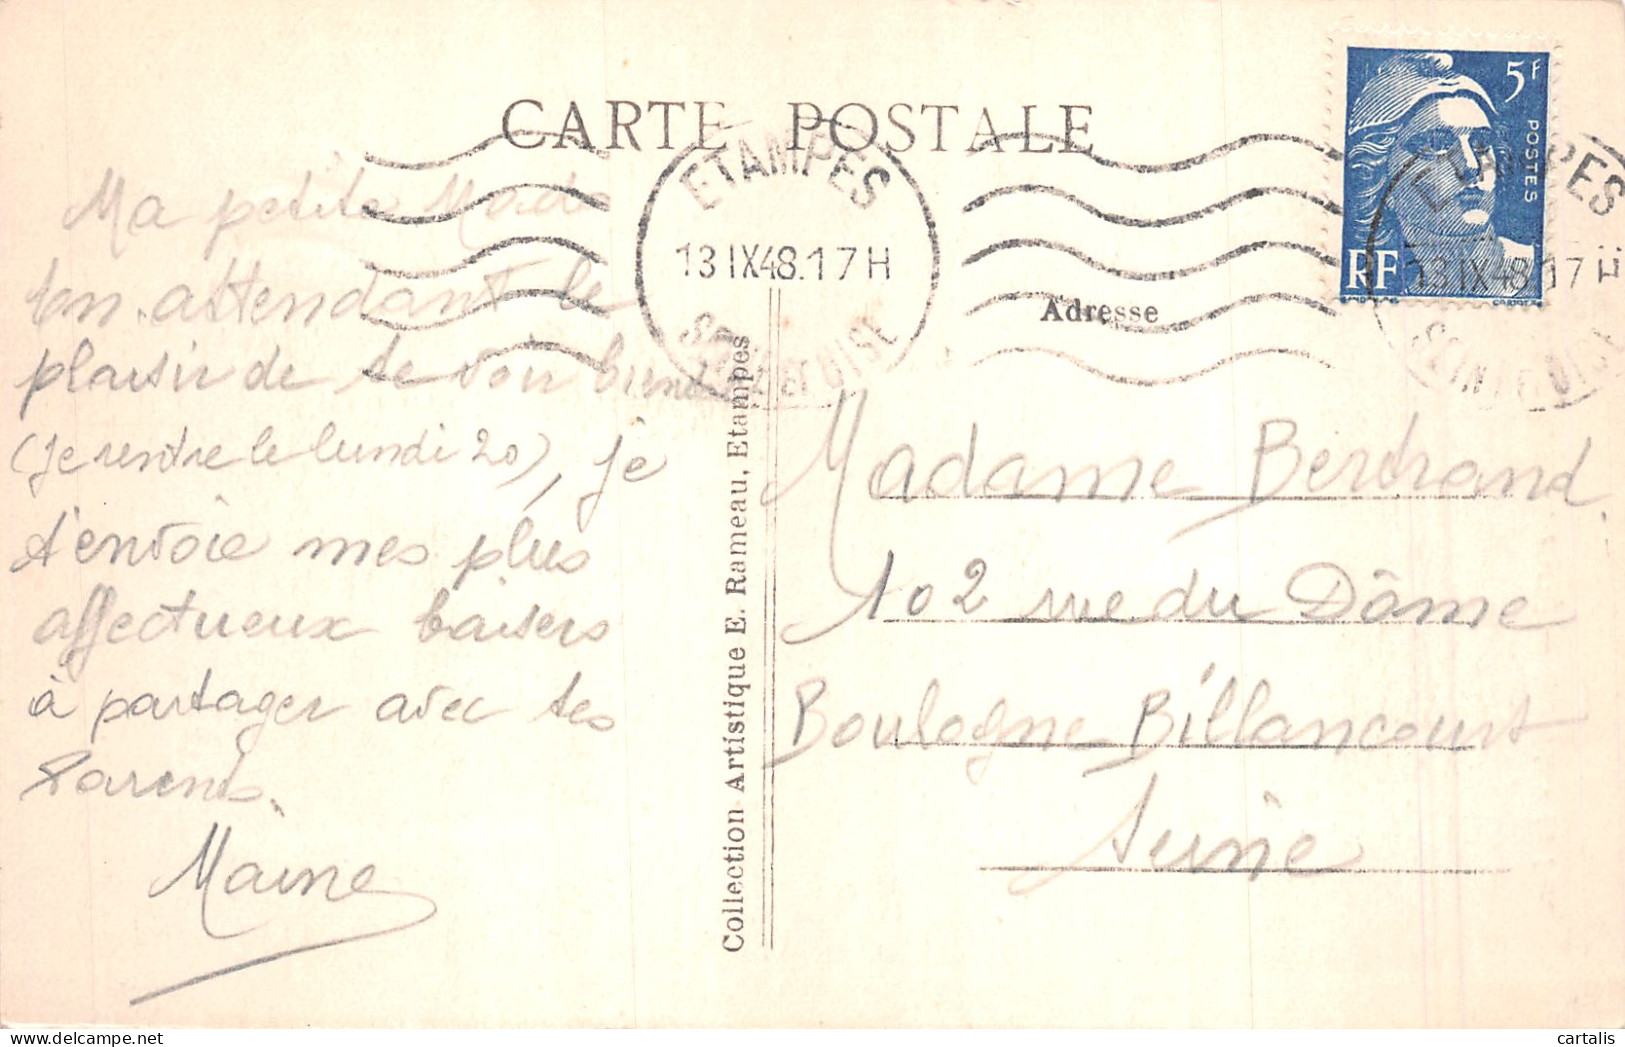 CARTE POSTALE
5F
POSTES
RF
ETAMPES
13 IX48.17H
SEINE ET OISE
ETAMPES
13 IX 48 17 H
SEINE ET OISE
Adresse
Ma petite Mado
En attendant le
plaisir de te voir bientôt
(je rentre le lundi 20), je
t'envoie mes plus
affectueux baisers
à partager avec tes
Parents.
Collection Artistique E. Rameau, Etampes
Madame Bertrand
102 rue du Dôme
Boulogne Billancourt
Seine
cartalis